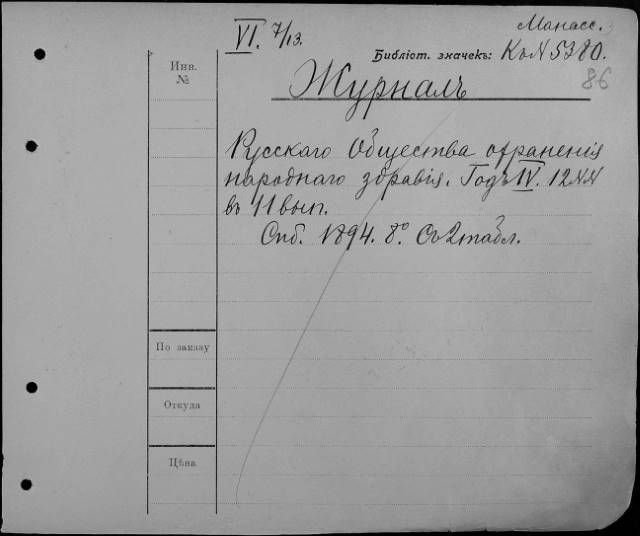 VI. 7/13.
Манасс.
Библіот. значекъ: К ъ N 5380.
86
Инв.
№
Журналъ
Русскаго Общества охраненія
народнаго здравія. Годъ IV. 12 NN
въ 11 вып.
Спб. 1894. 8° Съ 2 табл.
По заказу
Откуда
Цѣна